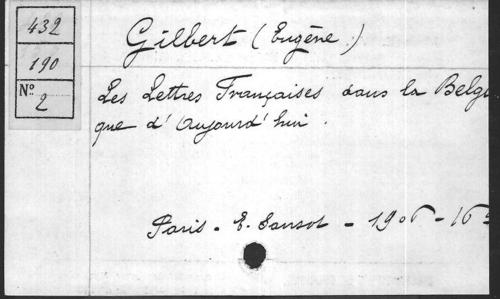 432
190
No 2
Gilbert (Eugène.)
Les Lettres Françaises dans la Belgi
que d'Aujourd'hui.
Paris - E. Sansot - 1906 - 16